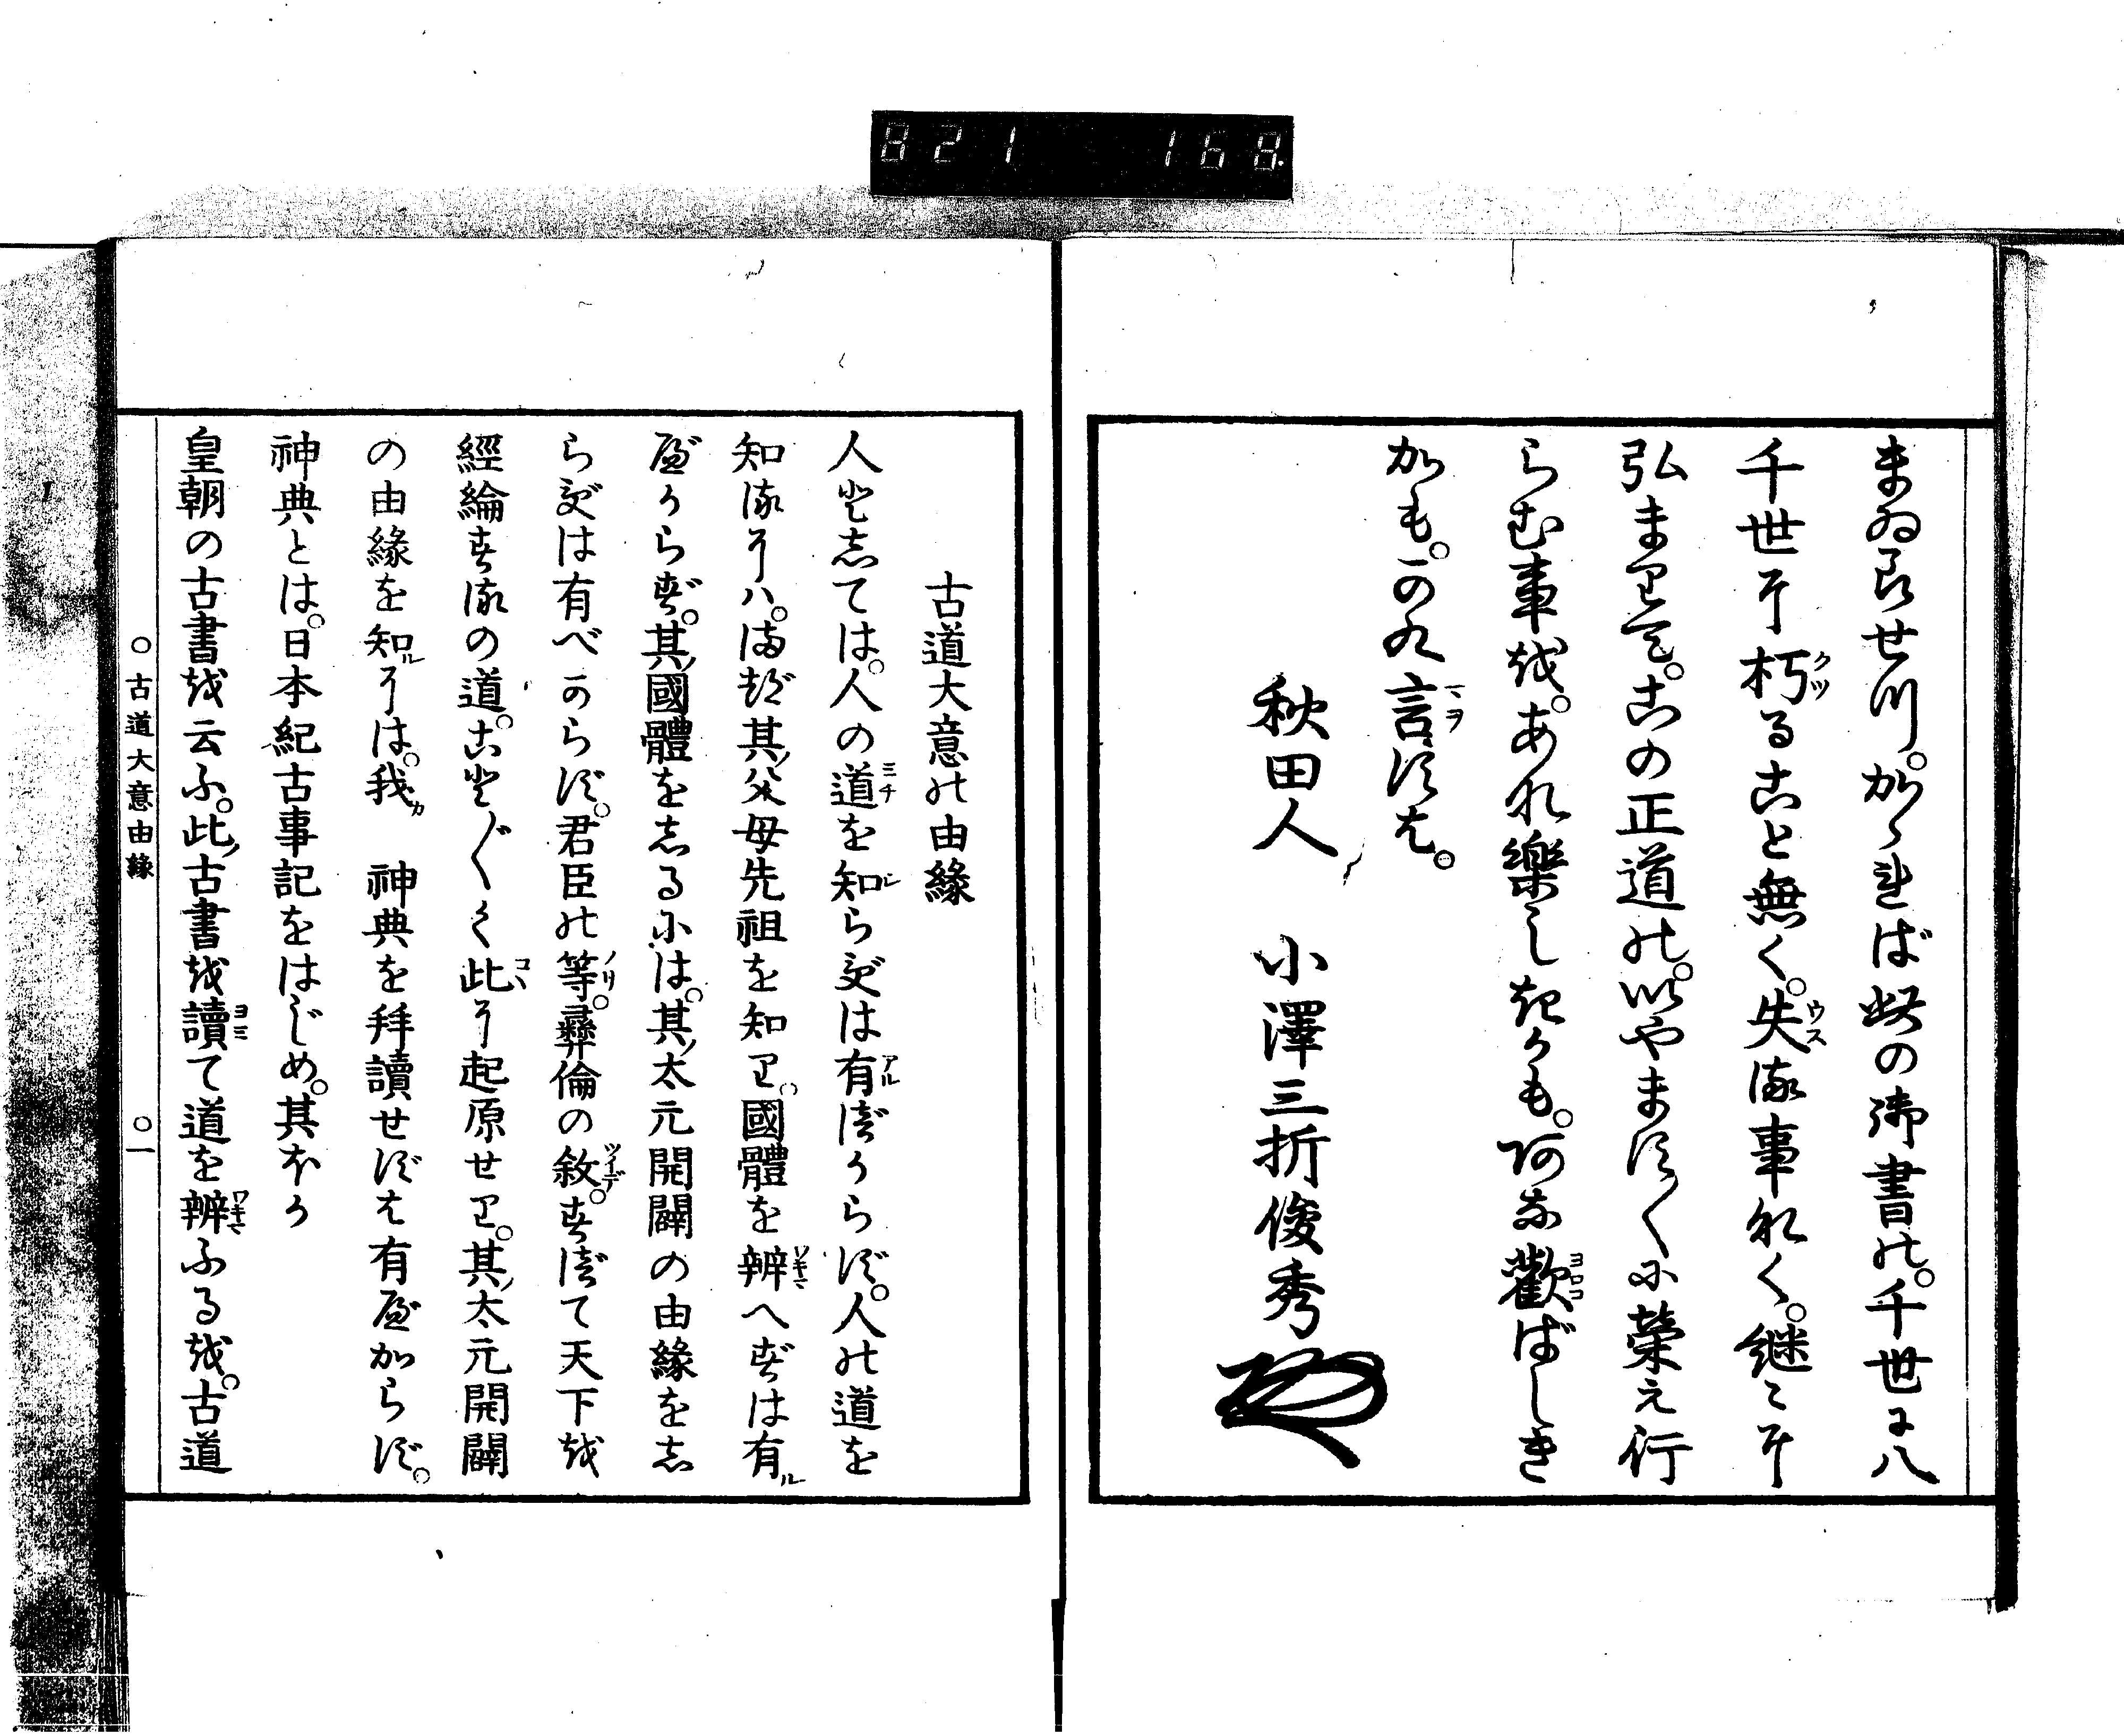 821 168
まゐらせつ。かゝれば此の御書の。千世に八
千世に朽ること無く。失る事なく。継々に
弘まりて。この正道の。いやますますに栄え行
らむ事を。あな楽しきかも。阿な歓ばしき
かも。かれ言すは。
秋田人 小澤三折俊秀
古道大意の由縁
人としては。人の道を知らずは有べからず。人の道を
知るには。まづ其ノ父母先祖を知り。國體を辨へずは有ル
べからず。其ノ國體をしるには。其ノ太元開闢の由緣をし
らずは有べからず。君臣の等。彝倫の敘。すべて天下を
經綸する道。ことごとく此に起原せり。其ノ太元開闢
の由緣を知ルには。我カ 神典を拜讀せずは有べからず。
神典とは。日本紀古事記をはじめ。其ほか
皇朝の古書を云ふ。此ノ古書を讀て道を辨ふるを。古道
○古道大意由緣 ○一